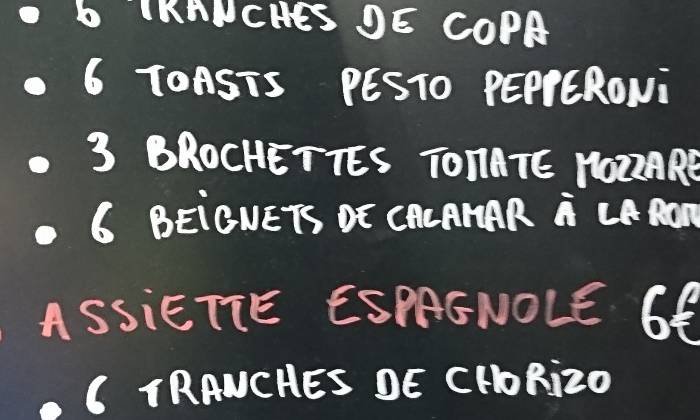 • 6 TRANCHES DE COPA
• 6 TOASTS PESTO PEPPERONI
• 3 BROCHETTES TOMATE MOZZARE
• 6 BEIGNETS DE CALAMAR À LA ROM
ASSIETTE ESPAGNOLE 6€
• 6 TRANCHES DE CHORIZO